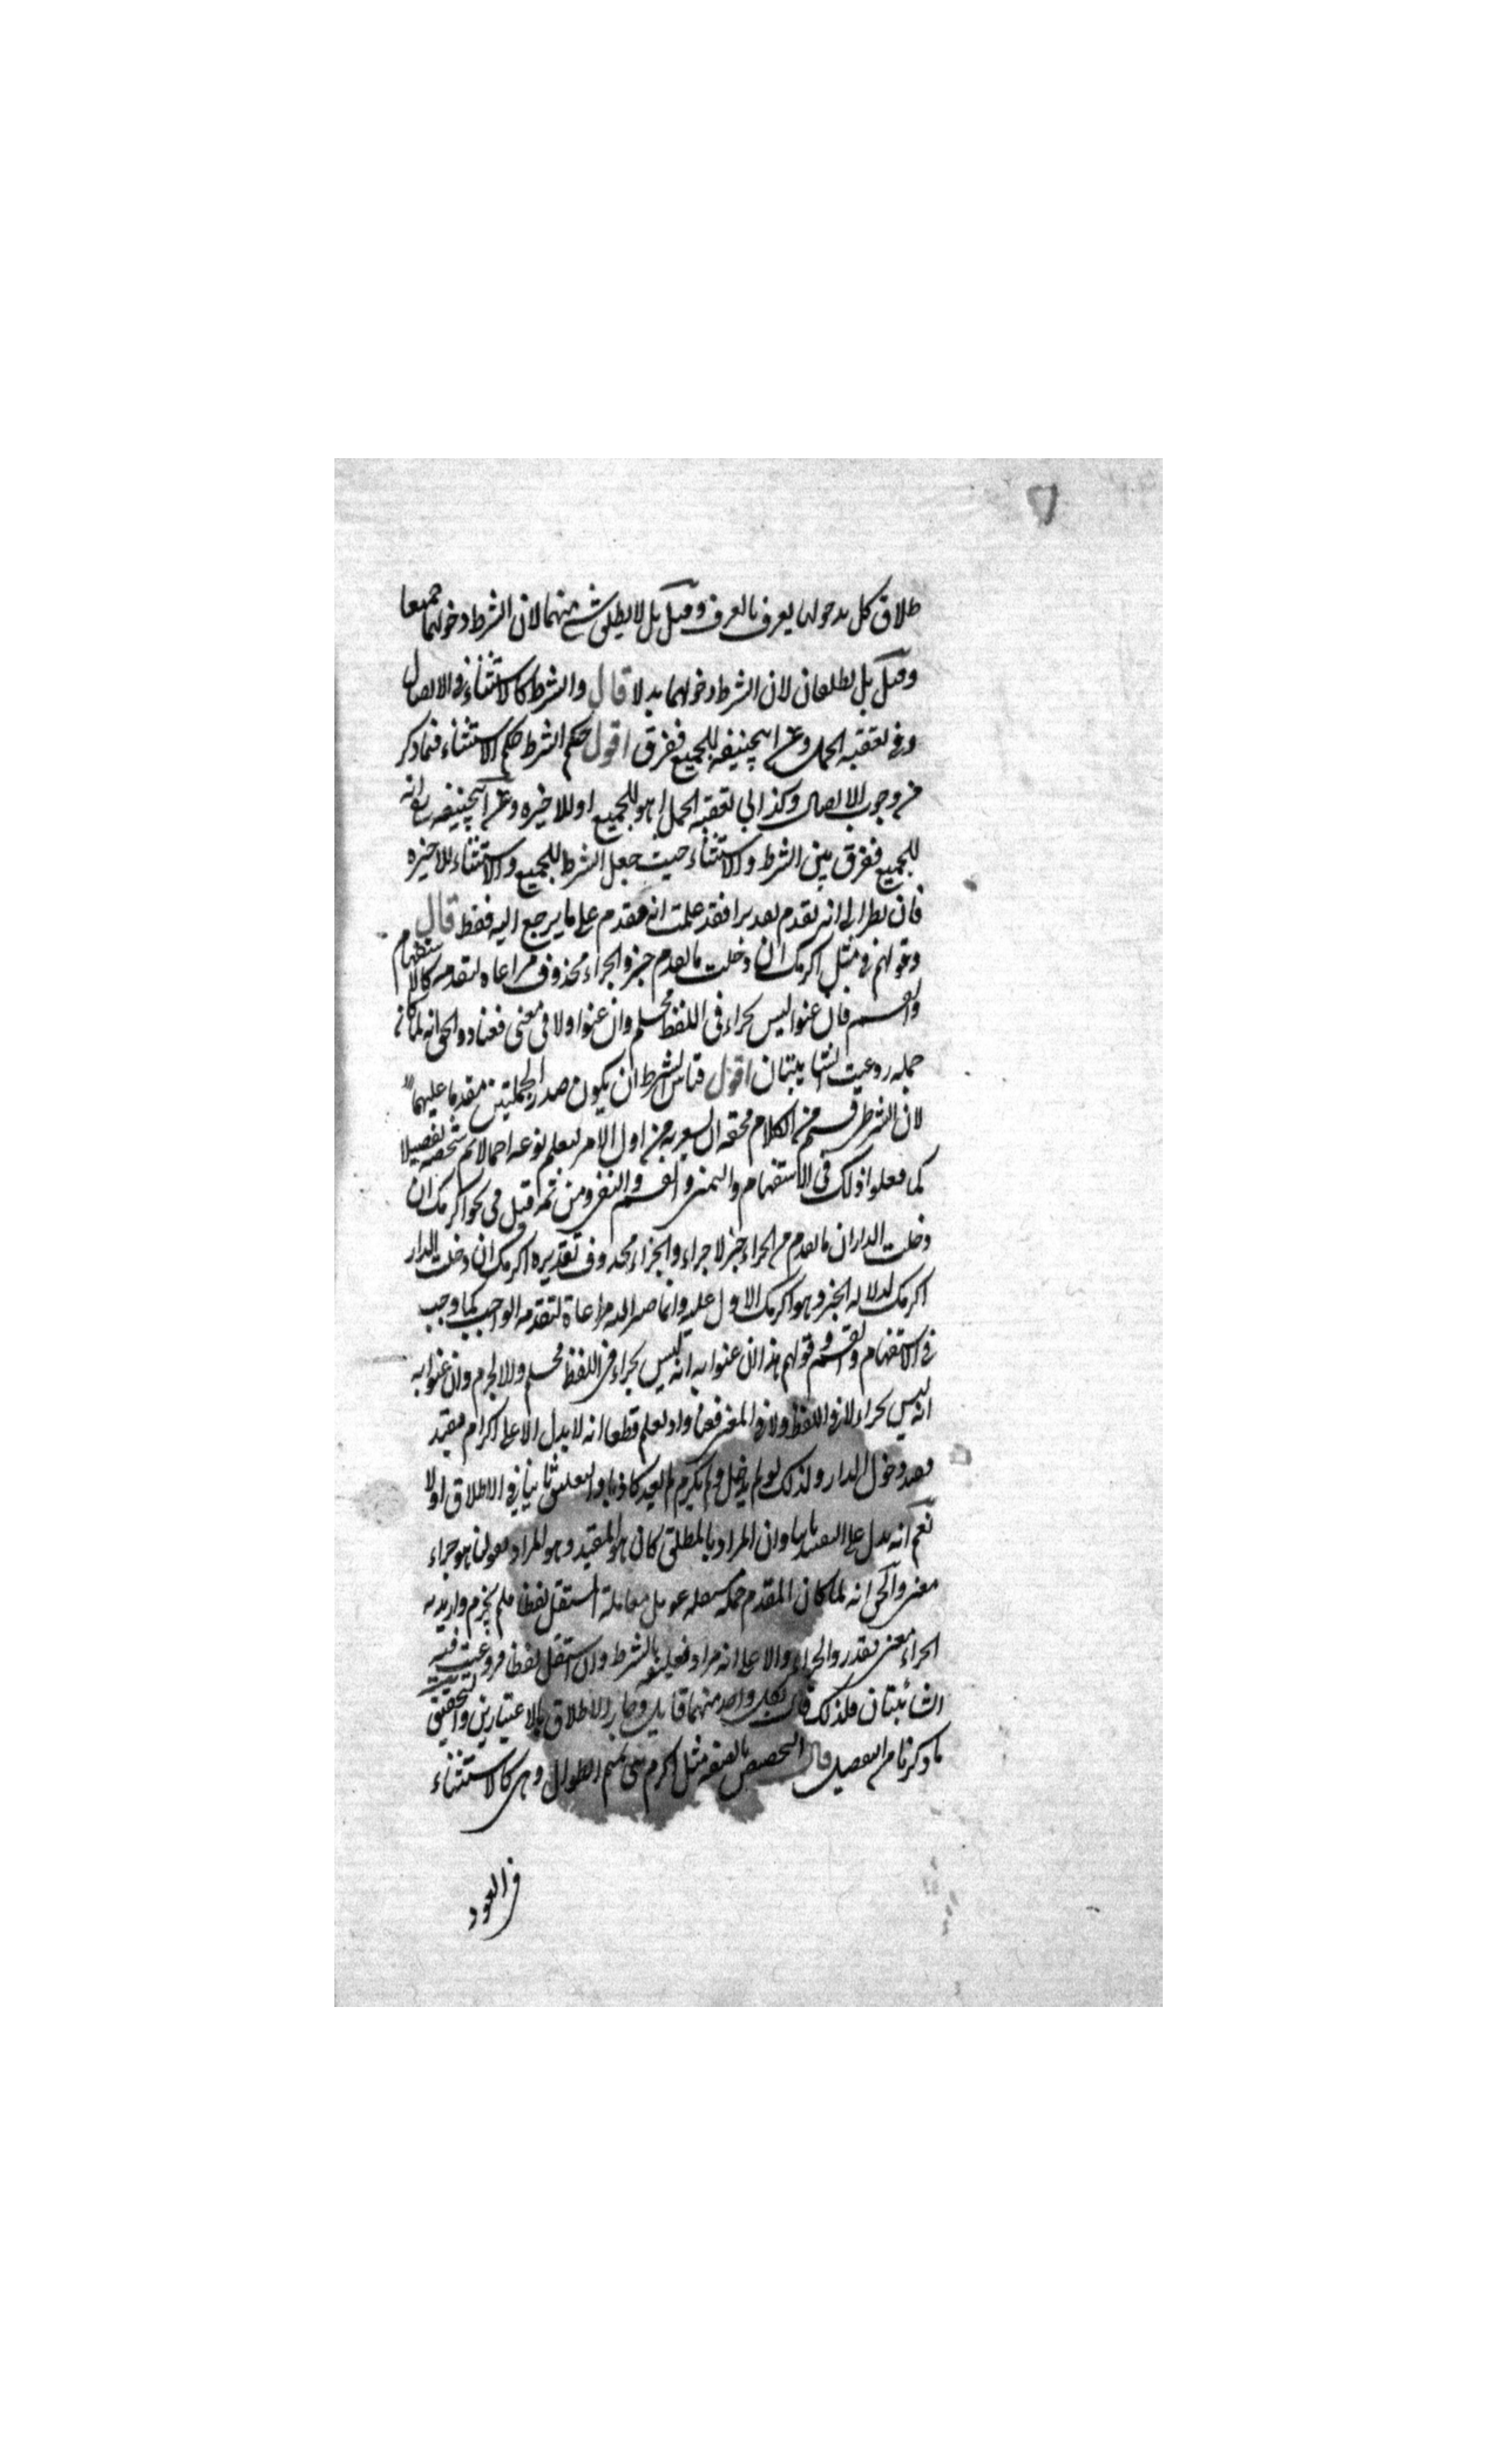 طلاق كل بدخولها يعرف بالعرف وقيل بل لا يطلق شئ منهما لان الشرط دخولهما جميعا
وقيل بل يطلقان لان الشرط دخولهما بدلا قال والشرط كالاستثناء في الاتصال
وفي تعقبه الجمل وعن ابي حنيفة للجميع ففرق اقول حكم الشرط حكم الاستثناء فيما ذكر
من وجوب الاتصال وكذا في تعقبه الجمل اهو للجميع او للاخيرة وعن ابي حنيفة انه
للجميع ففرق بين الشرط والاستثناء حيث جعل الشرط للجميع والاستثناء للاخيرة
فان نظر الى انه تقدم تقديرا فقد علمت انه مقدم على ما يرجع اليه فقط قال
وقولهم في مثل اكرمك ان دخلت ما تقدم خبر والجزاء محذوف مراعاة لتقدمه كالاستفهام
والقسم فان عنوا ليس بجزاء في اللفظ فمسلم وان عنوا ولا في معنى فعناد والحق انه لما كان
جملة روعيت الشائبتان اقول قياس الشرط ان يكون صدر الجملتين مقدما عليهما
لان الشرط قسم من الكلام فحقه ان يشعر به من اول الامر ليعلم نوعه اجمالا ثم شخصه تفصيلا
كما فعلوا ذلك في الاستفهام والتمني والقسم والنفي ومن ثمة قيل في نحو اكرمك ان
دخلت الدار ان ما تقدم من الجزاء خبر لا جزاء والجزاء محذوف تقديره اكرمك ان دخلت الدار
اكرمك لدلالة الخبر وهو اكرمك الاول عليه وانما صير اليه مراعاة لتقدمه الواجب كما وجب
في الاستفهام والقسم وقولهم هذا ان عنوا به انه ليس بجزاء في اللفظ فمسلم والا لجزم وان عنوا به
انه ليس بجزاء لا في اللفظ ولا في المعنى فعناد اذ يعلم قطعا انه لا يدل الا على اكرام مقيد
بقيد دخول الدار ولذلك لو لم يدخل ولم يكرم لم يعد كاذبا والتعليق ثانيا في الاطلاق اولا
نعم انه يدل على التقييد ثانيا وان المراد بالمطلق كان هو المقيد وهو المراد بقولنا هو جزاء
معنى والحق انه لما كان المقدم جملة مستقلة عومل معاملة المستقل لفظا فلم يجزم واريد به
الجزاء معنى فقدر والجزاء والا على انه مراد تعليقه بالشرط وان استقل لفظا فروعيت فيه
الشائبتان فلذلك قال بكل واحد منهما قائل وجاز الاطلاق بالاعتبارين والتحقيق
ما ذكرنا من التفصيل قال التخصيص بالصفة مثل اكرم بني تميم الطوال وهي كالاستثناء
في العود